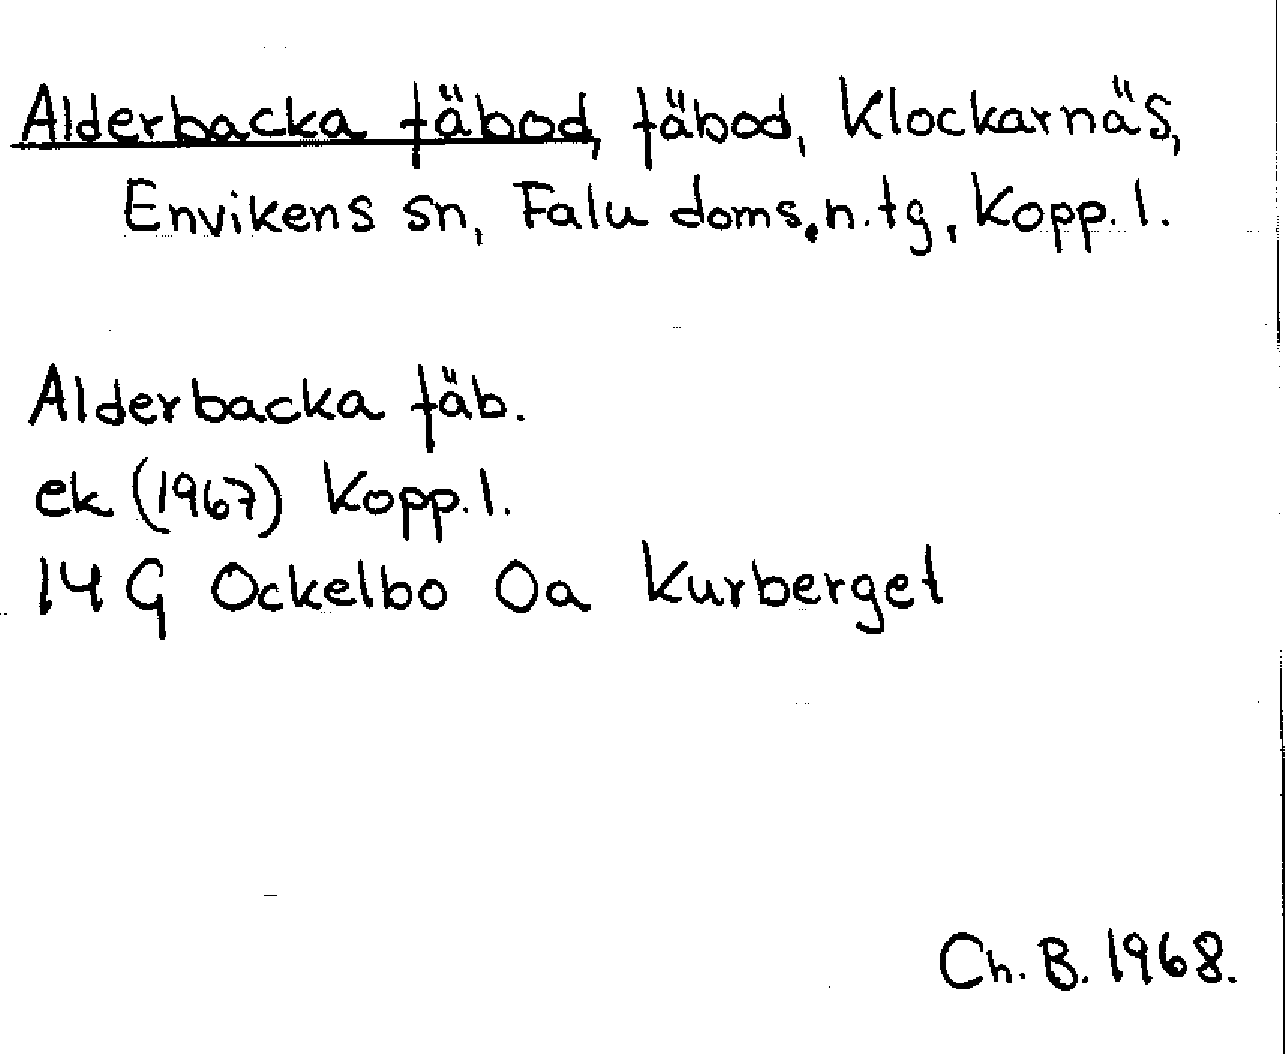 Alderbacka fäbod, fäbod, Klockarnäs,
Envikens sn, Falu doms.n.tg, Kopp.l.
Alderbacka fäb.
ek (1967) Kopp.l.
14 G Ockelbo 0a Kurberget
Ch. B. 1968.